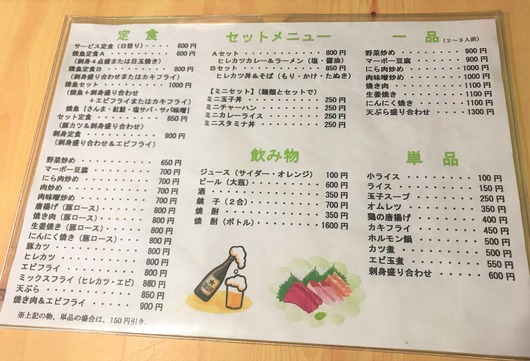 定食
サービス定食（日替り）・・・・ 600円
焼魚定食A・・・・・・・・・ 600円
（刺身４点盛または目玉焼き）
焼魚定食B・・・・・・・・・ 800円
（刺身盛り合わせまたはカキフライ）
焼魚セット・・・・・・・・・ 1000円
（焼魚＋刺身盛り合わせ
＋エビフライまたはカキフライ）
焼魚【さんま・紅鮭・塩サバ・サバ味噌】
セット定食・・・・・・・・・ 850円
（豚カツ＆刺身盛り合わせ）
刺身定食・・・・・・・・・・ 900円
（刺身盛り合わせ＆エビフライ）
野菜炒め・・・・・・・・・・ 650円
マーボー豆腐・・・・・・・・ 700円
にら肉炒め・・・・・・・・・ 700円
肉炒め・・・・・・・・・・・ 700円
肉味噌炒め・・・・・・・・・ 700円
唐揚げ（豚ロース）・・・・・ 800円
焼き肉（豚ロース）・・・・・ 800円
生姜焼き（豚ロース）・・・・ 800円
にんにく焼き（豚ロース）・・ 800円
豚カツ・・・・・・・・・・・ 800円
ヒレカツ・・・・・・・・・・ 800円
エビフライ・・・・・・・・・ 800円
ミックスフライ（ヒレカツ・エビ） 850円
天ぷら・・・・・・・・・・・ 850円
焼き肉＆エビフライ・・・・・ 900円
※上記の物、単品の場合は、150円引き。
セットメニュー
Aセット・・・・・・・・・・ 800円
ヒレカツカレー＆ラーメン（塩・醤油）
Bセット・・・・・・・・・・ 850円
ヒレカツ丼＆そば（もり・かけ・たぬき）
【ミニセット】（麺類とセットで）
ミニ玉子丼・・・・・・・・・ 250円
ミニチャーハン・・・・・・・ 250円
ミニカレーライス・・・・・・ 250円
ミニスタミナ丼・・・・・・・ 250円
飲み物
ジュース（サイダー・オレンジ） 100円
ビール（大瓶）・・・・・・・ 600円
酒・・・・・・・・・・・・・ 350円
銚子（２合）・・・・・・・・ 700円
焼酎・・・・・・・・・・・・ 350円
焼酎（ボトル）・・・・・・・ 1600円
一品（２～３人前）
野菜炒め・・・・・・・・・・ 900円
マーボー豆腐・・・・・・・・ 900円
にら肉炒め・・・・・・・・・ 1000円
肉味噌炒め・・・・・・・・・ 1000円
焼き肉・・・・・・・・・・・ 1100円
生姜焼き・・・・・・・・・・ 1100円
にんにく焼き・・・・・・・・ 1100円
天ぷら盛り合わせ・・・・・・ 1300円
単品
小ライス・・・・・・・・・・ 100円
ライス・・・・・・・・・・・ 150円
玉子スープ・・・・・・・・・ 250円
オムレツ・・・・・・・・・・ 350円
鶏の唐揚げ・・・・・・・・・ 400円
カキフライ・・・・・・・・・ 450円
ホルモン鍋・・・・・・・・・ 500円
カツ煮・・・・・・・・・・・ 500円
エビ玉煮・・・・・・・・・・ 550円
刺身盛り合わせ・・・・・・・ 600円